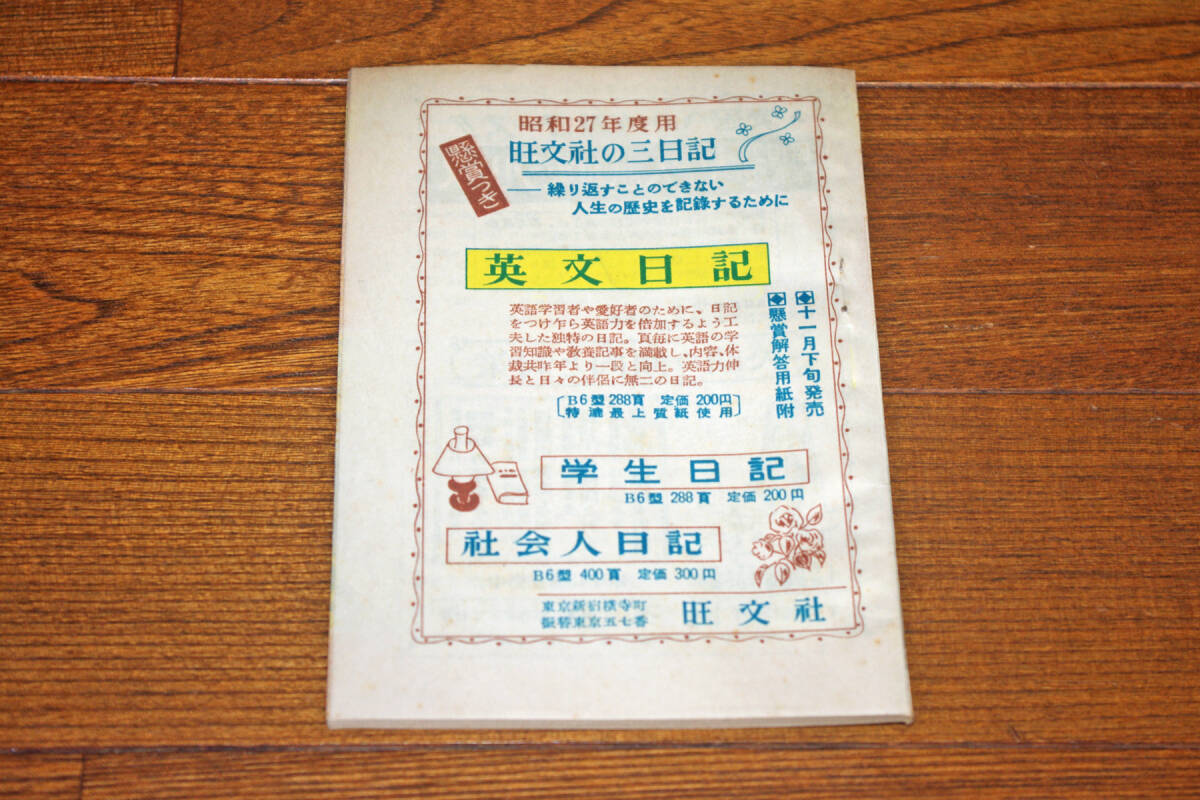 昭和27年度用
懸賞つき
旺文社の三日記
――繰り返すことのできない
人生の歴史を記録するために
英文日記
英語学習者や愛好者のために、日記
をつけ乍ら英語力を倍加するよう工
夫した独特の日記。頁毎に英語の学
習知識や教養記事を満載し、内容、体
裁共昨年より一段と向上。英語力伸
長と日々の伴侶に無二の日記。
〔B6型 288頁 定価 200円
特漉最上質紙使用〕
◆十一月下旬発売
◆懸賞解答用紙附
学生日記
B6型 288頁 定価 200円
社会人日記
B6型 400頁 定価 300円
東京新宿横寺町
振替東京五七番
旺文社